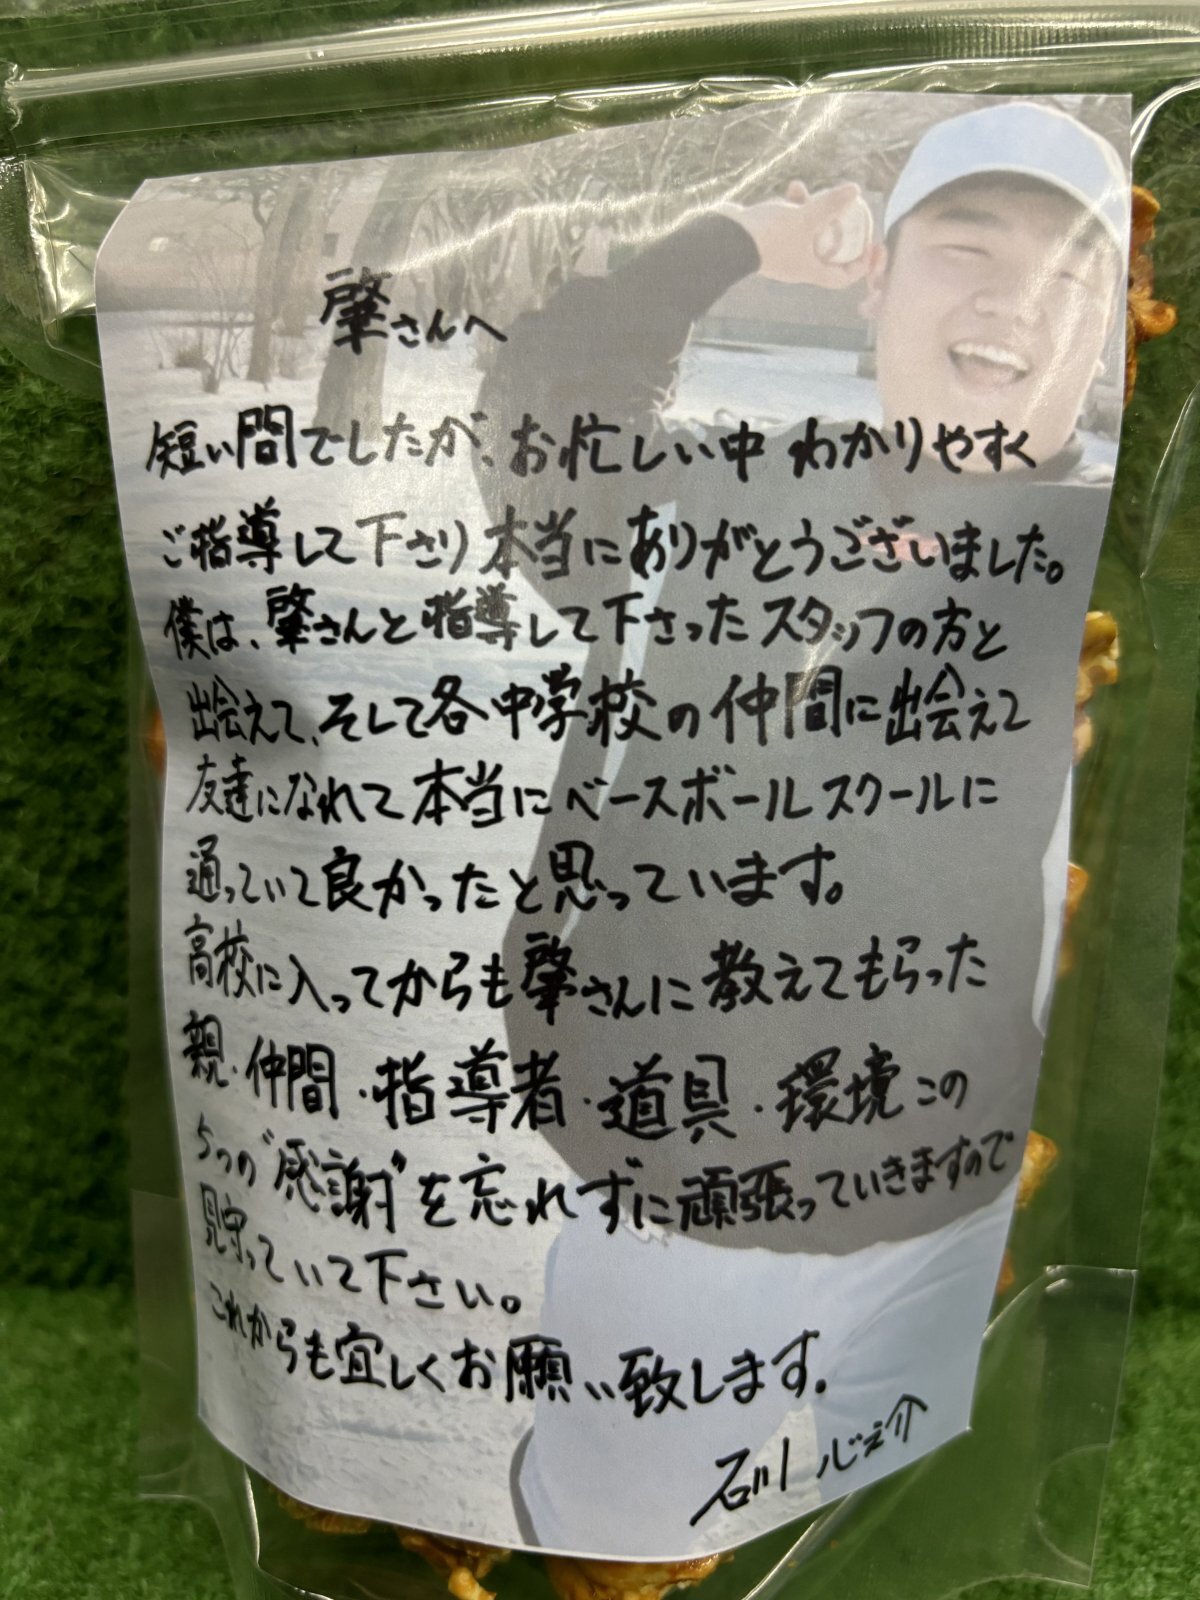 肇さんへ
短い間でしたが、お忙しい中 わかりやすく
ご指導して下さり本当にありがとうございました。
僕は、肇さんと指導して下さったスタッフの方と
出会えて、そして各中学校の仲間に出会えて
友達になれて本当にベースボールスクールに
通っていて良かったと思っています。
高校に入ってからも肇さんに教えてもらった
親・仲間・指導者・道具・環境この
5つの“感謝”を忘れずに頑張っていきますので
見守っていて下さい。
これからも宜しくお願い致します。
石川 心之介